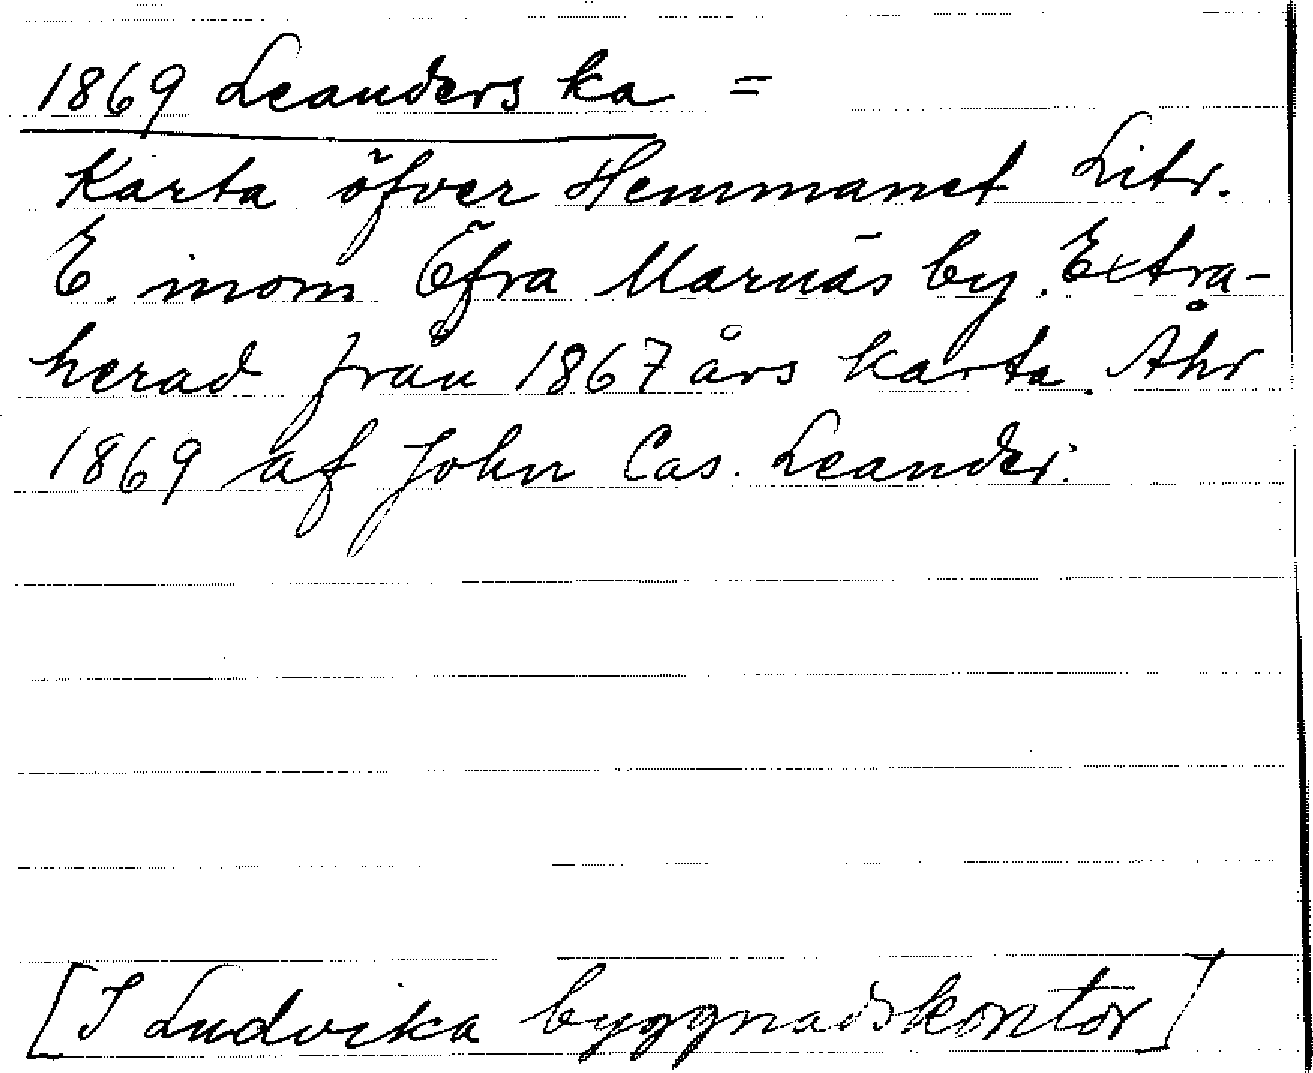 1869 Leanders ka =
Karta öfver Hemmanet Litr.
E. inom Öfra Marnäs by. Extra-
herad från 1867 års karta. Åhr
1869 af John Cas. Leander.
[I Ludvika byggnadskontor]